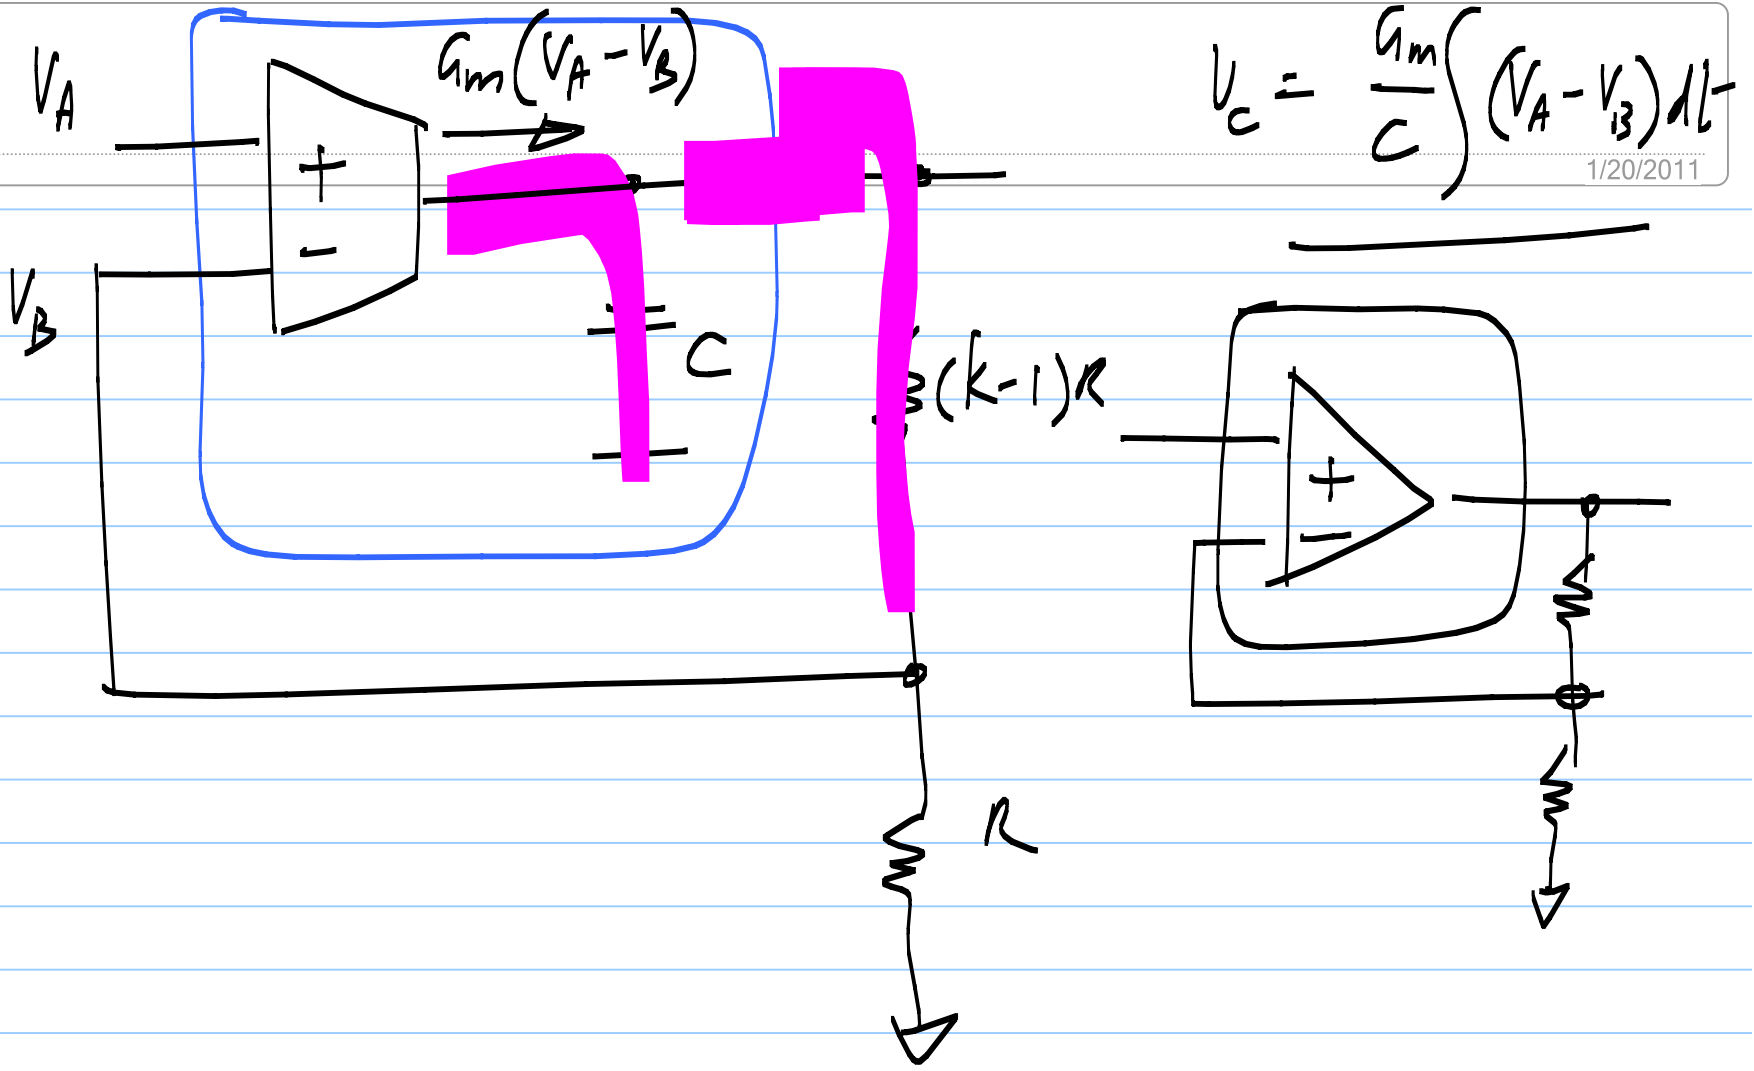 V_A
G_m(V_A - V_B)
V_C = G_m/C ∫(V_A - V_B)dt
1/20/2011
+
-
V_B
C
(k-1)R
+
-
R